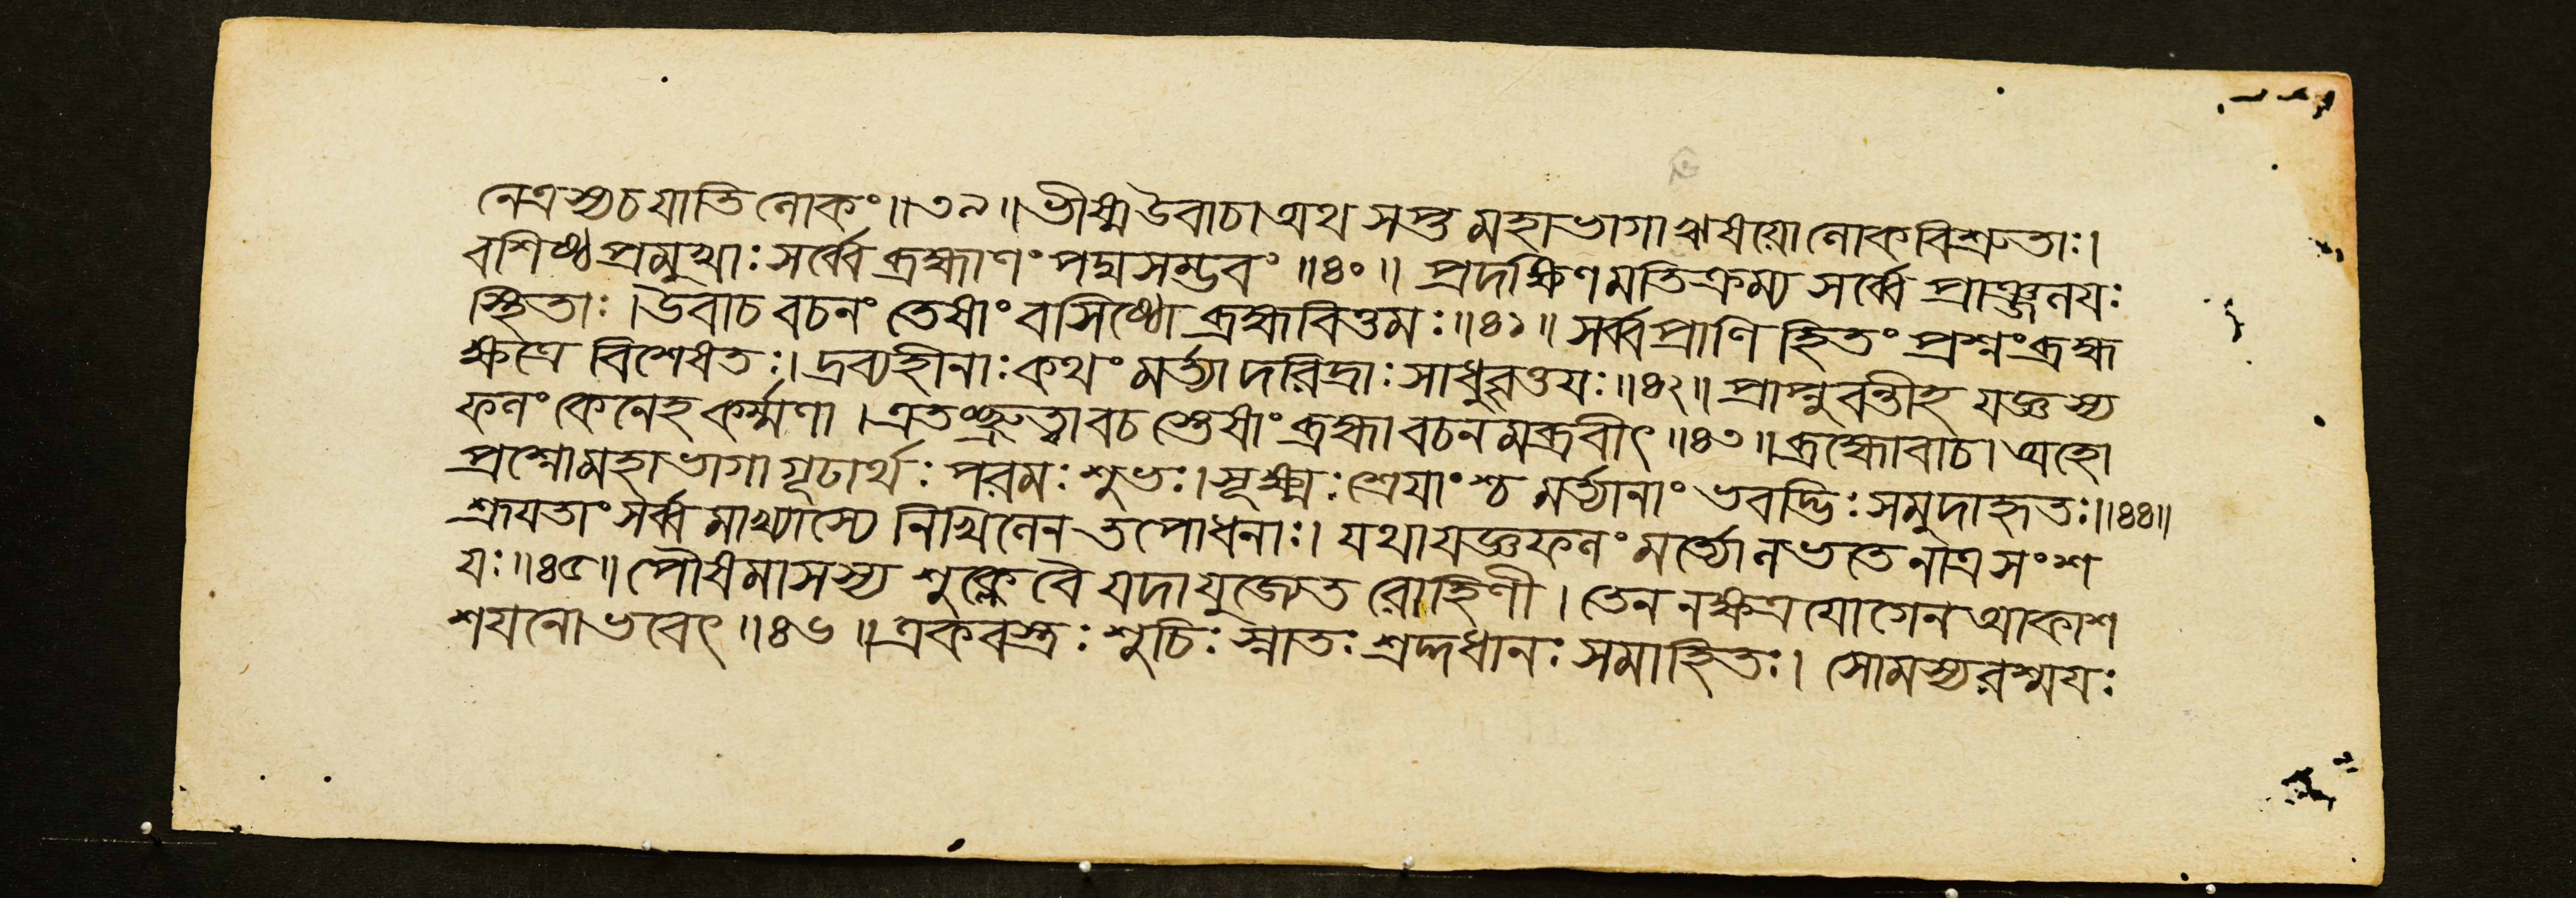 নেত্রস্যচ যাতি লোকং॥৩৯॥ ভীষ্ম উবাচ। অথ সপ্ত মহাভাগা ঋষয়ো লোকবিশ্রুতাঃ।
বশিষ্ঠপ্রমুখাঃ সর্ব্বে ব্রহ্মাণং পদ্মসম্ভবং॥৪০॥ প্রদক্ষিণমতিক্রম্য সর্ব্বে প্রাঞ্জলযঃ
স্থিতাঃ। উবাচ বচনং তেষাং বসিষ্ঠো ব্রহ্মবিত্তমঃ॥৪১॥ সর্ব্বপ্রাণি হিতং প্রশ্নং ব্রহ্ম
ক্ষত্রে বিশেষতঃ। দ্রব্যহীনাঃ কথং মর্ত্যা দরিদ্রাঃ সাধুবৃত্তযঃ॥৪২॥ প্রাপ্নুবন্তীহ যজ্ঞস্য
ফলং কেনেহ কর্ম্মণা। এতৎশ্রুত্বা বচ স্তেষাং ব্রহ্মা বচনমব্রবীৎ॥৪৩॥ ব্রহ্মোবাচ। অহো
প্রশ্নো মহাভাগা গূঢার্থঃ পরমঃ শুভঃ। সূক্ষ্মঃ শ্রেযাংশ্চ মর্ত্যানাং ভবদ্ভিঃ সমুদাহৃতঃ॥৪৪॥
শ্রূযতাং সর্ব্বমাখ্যাস্যে নিখিলেন তপোধনাঃ। যথা যজ্ঞফলং মর্ত্যো লভতে নাত্র সংশ
যঃ॥৪৫॥ পৌষমাসস্য শুক্লে বৈ যদা যুজ্যেত রোহিণী। তেন নক্ষত্রযোগেন আকাশ
শযনো ভবেৎ॥৪৬॥ একবস্ত্রঃ শুচিঃ স্নাতঃ শ্রদ্দধানঃ সমাহিতঃ। সোমস্য রশ্মযঃ